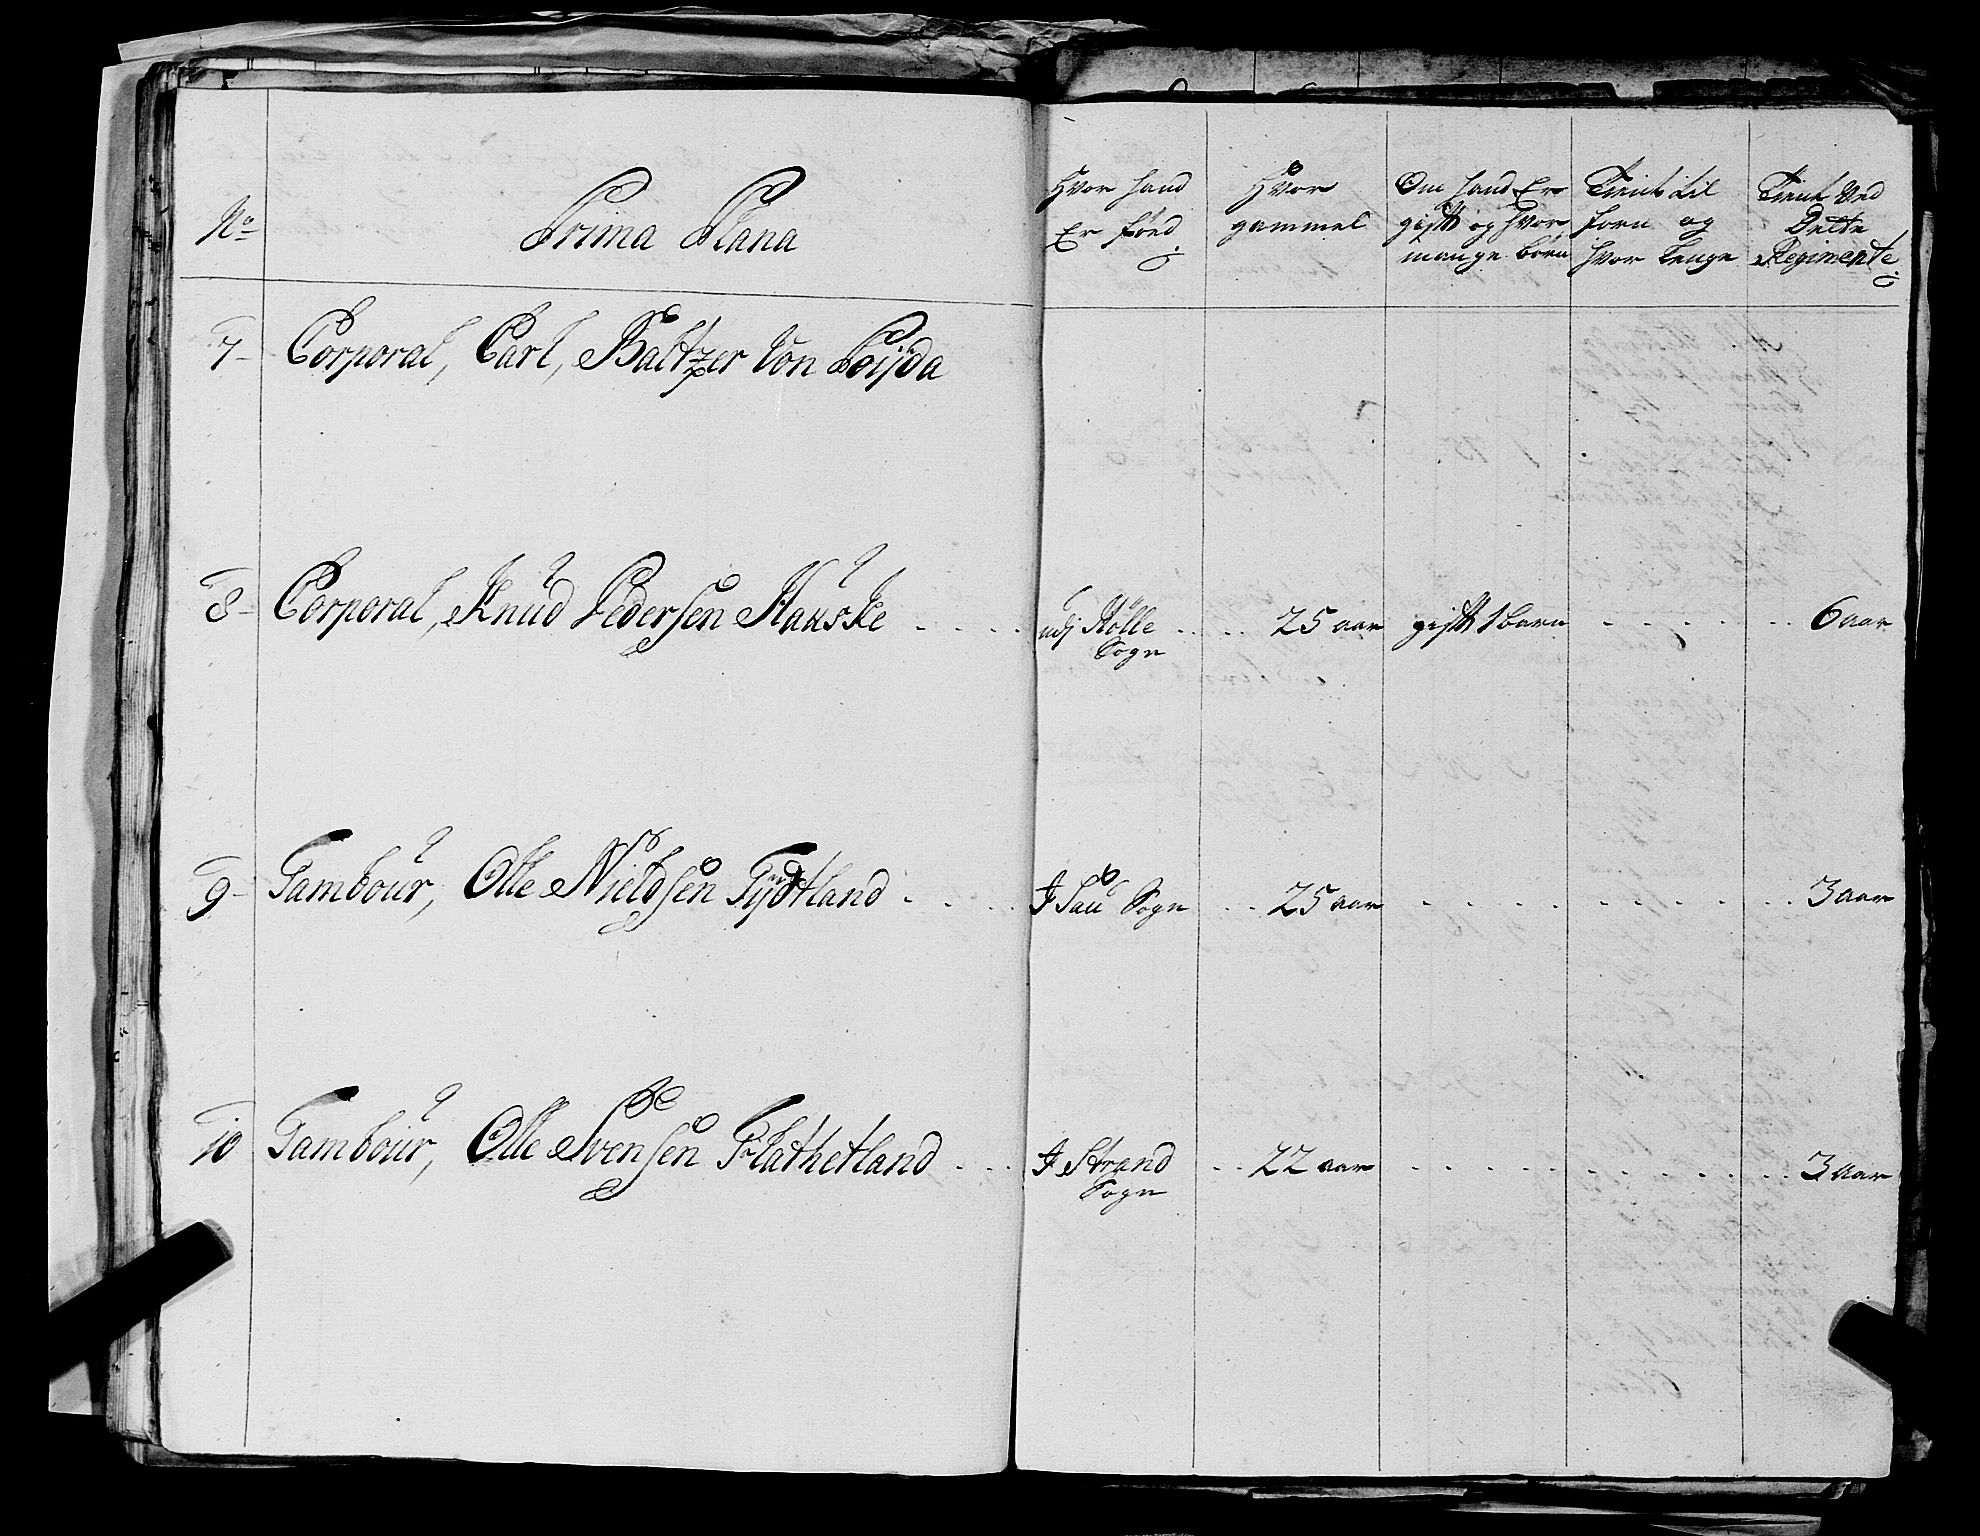 No
Prima Plana
Hvor hand
Er föed
Hvor
gammel
Om hand Er
gifft og hvor
mange börn
Tient til
forn og
hvor lenge
Tient ved
Dette
Regimente
7 Corporal, Carl, Baltzer von
8 Corporal, Knud Pedersen Hauske . . . . udj Hölle . . . . 25 aar gifft 1 barn . . . . . . 6 aar
Sogn
9 Tambour, Olle Nielsen Tydtland . . . . J Sau Sogn . . 25 aar . . . . . . . . . 3 aar
10 Tambour, Olle Svensen Flathetland . . . J Strand . . 22 aar . . . . . . . . . . 3 aar
Sogn